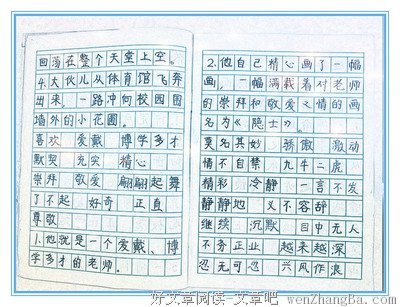 回荡在整个天堂上空。
4.大伙儿从体育馆飞奔
出来,一路冲向校园围
墙外的小花圃。
喜欢 爱戴 博学多才
默契 充实 精心
崇拜 敬爱 翩翩起舞
了不起 好奇 正直
尊敬
1.他就是一个爱戴、博
学多才的老师。
2.他自己精心画了一幅
画,一幅满载着对老师
的崇拜和敬爱之情的画
名为《隐士》。
莫名其妙 骄傲 激动
情不自禁 九牛二虎
精彩 冷静 一言不发
静静地 义不容辞
继续 沉默 目中无人
不务正业 越来越深
忍无可忍 兴风作浪
好文章阅读-文章吧
wenZhangBa.com